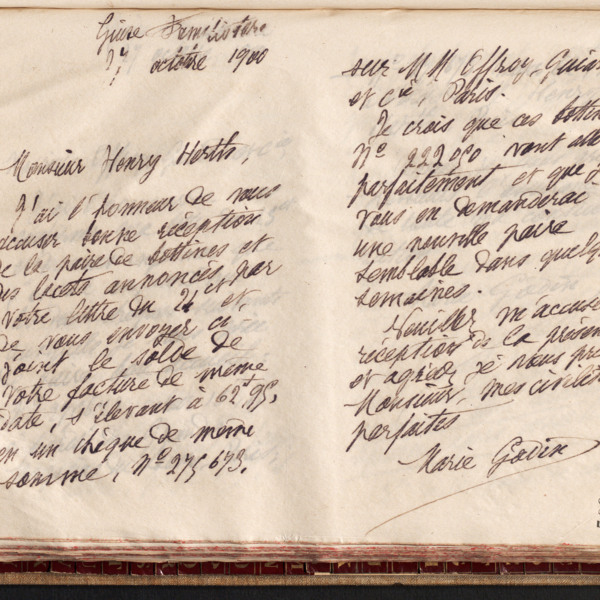 Guise Familistère
27 octobre 1900
Monsieur Henry Herth,
J'ai l'honneur de vous
accuser bonne réception
de la paire de bottines et
des lacets annoncés par
votre lettre du 24 et
de vous envoyer ci
joint le solde de
votre facture de même
date, s'élevant à 62f95,
en un chèque de même
somme, No 275 673.
sur MM Offroy, Guia
et Cie, Paris.
Je crois que ces bottin
No 222050 vont alle
parfaitement et que j
vous en demanderai
une nouvelle paire
semblable dans quelq
semaines.
Veuillez m'accuse
réception de la présen
et agréer, je vous pri
Monsieur, mes civilit
parfaites
Marie Godin